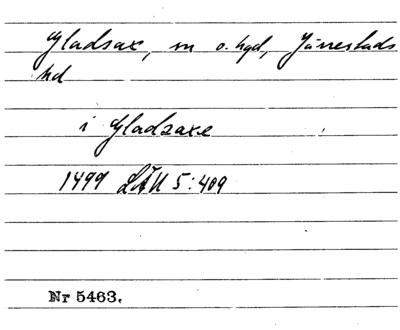 Gladsax, sn o. hgd, Järrestads
hd
i Gladsaxe
1499 LÄU 5:409
Nr 5463.